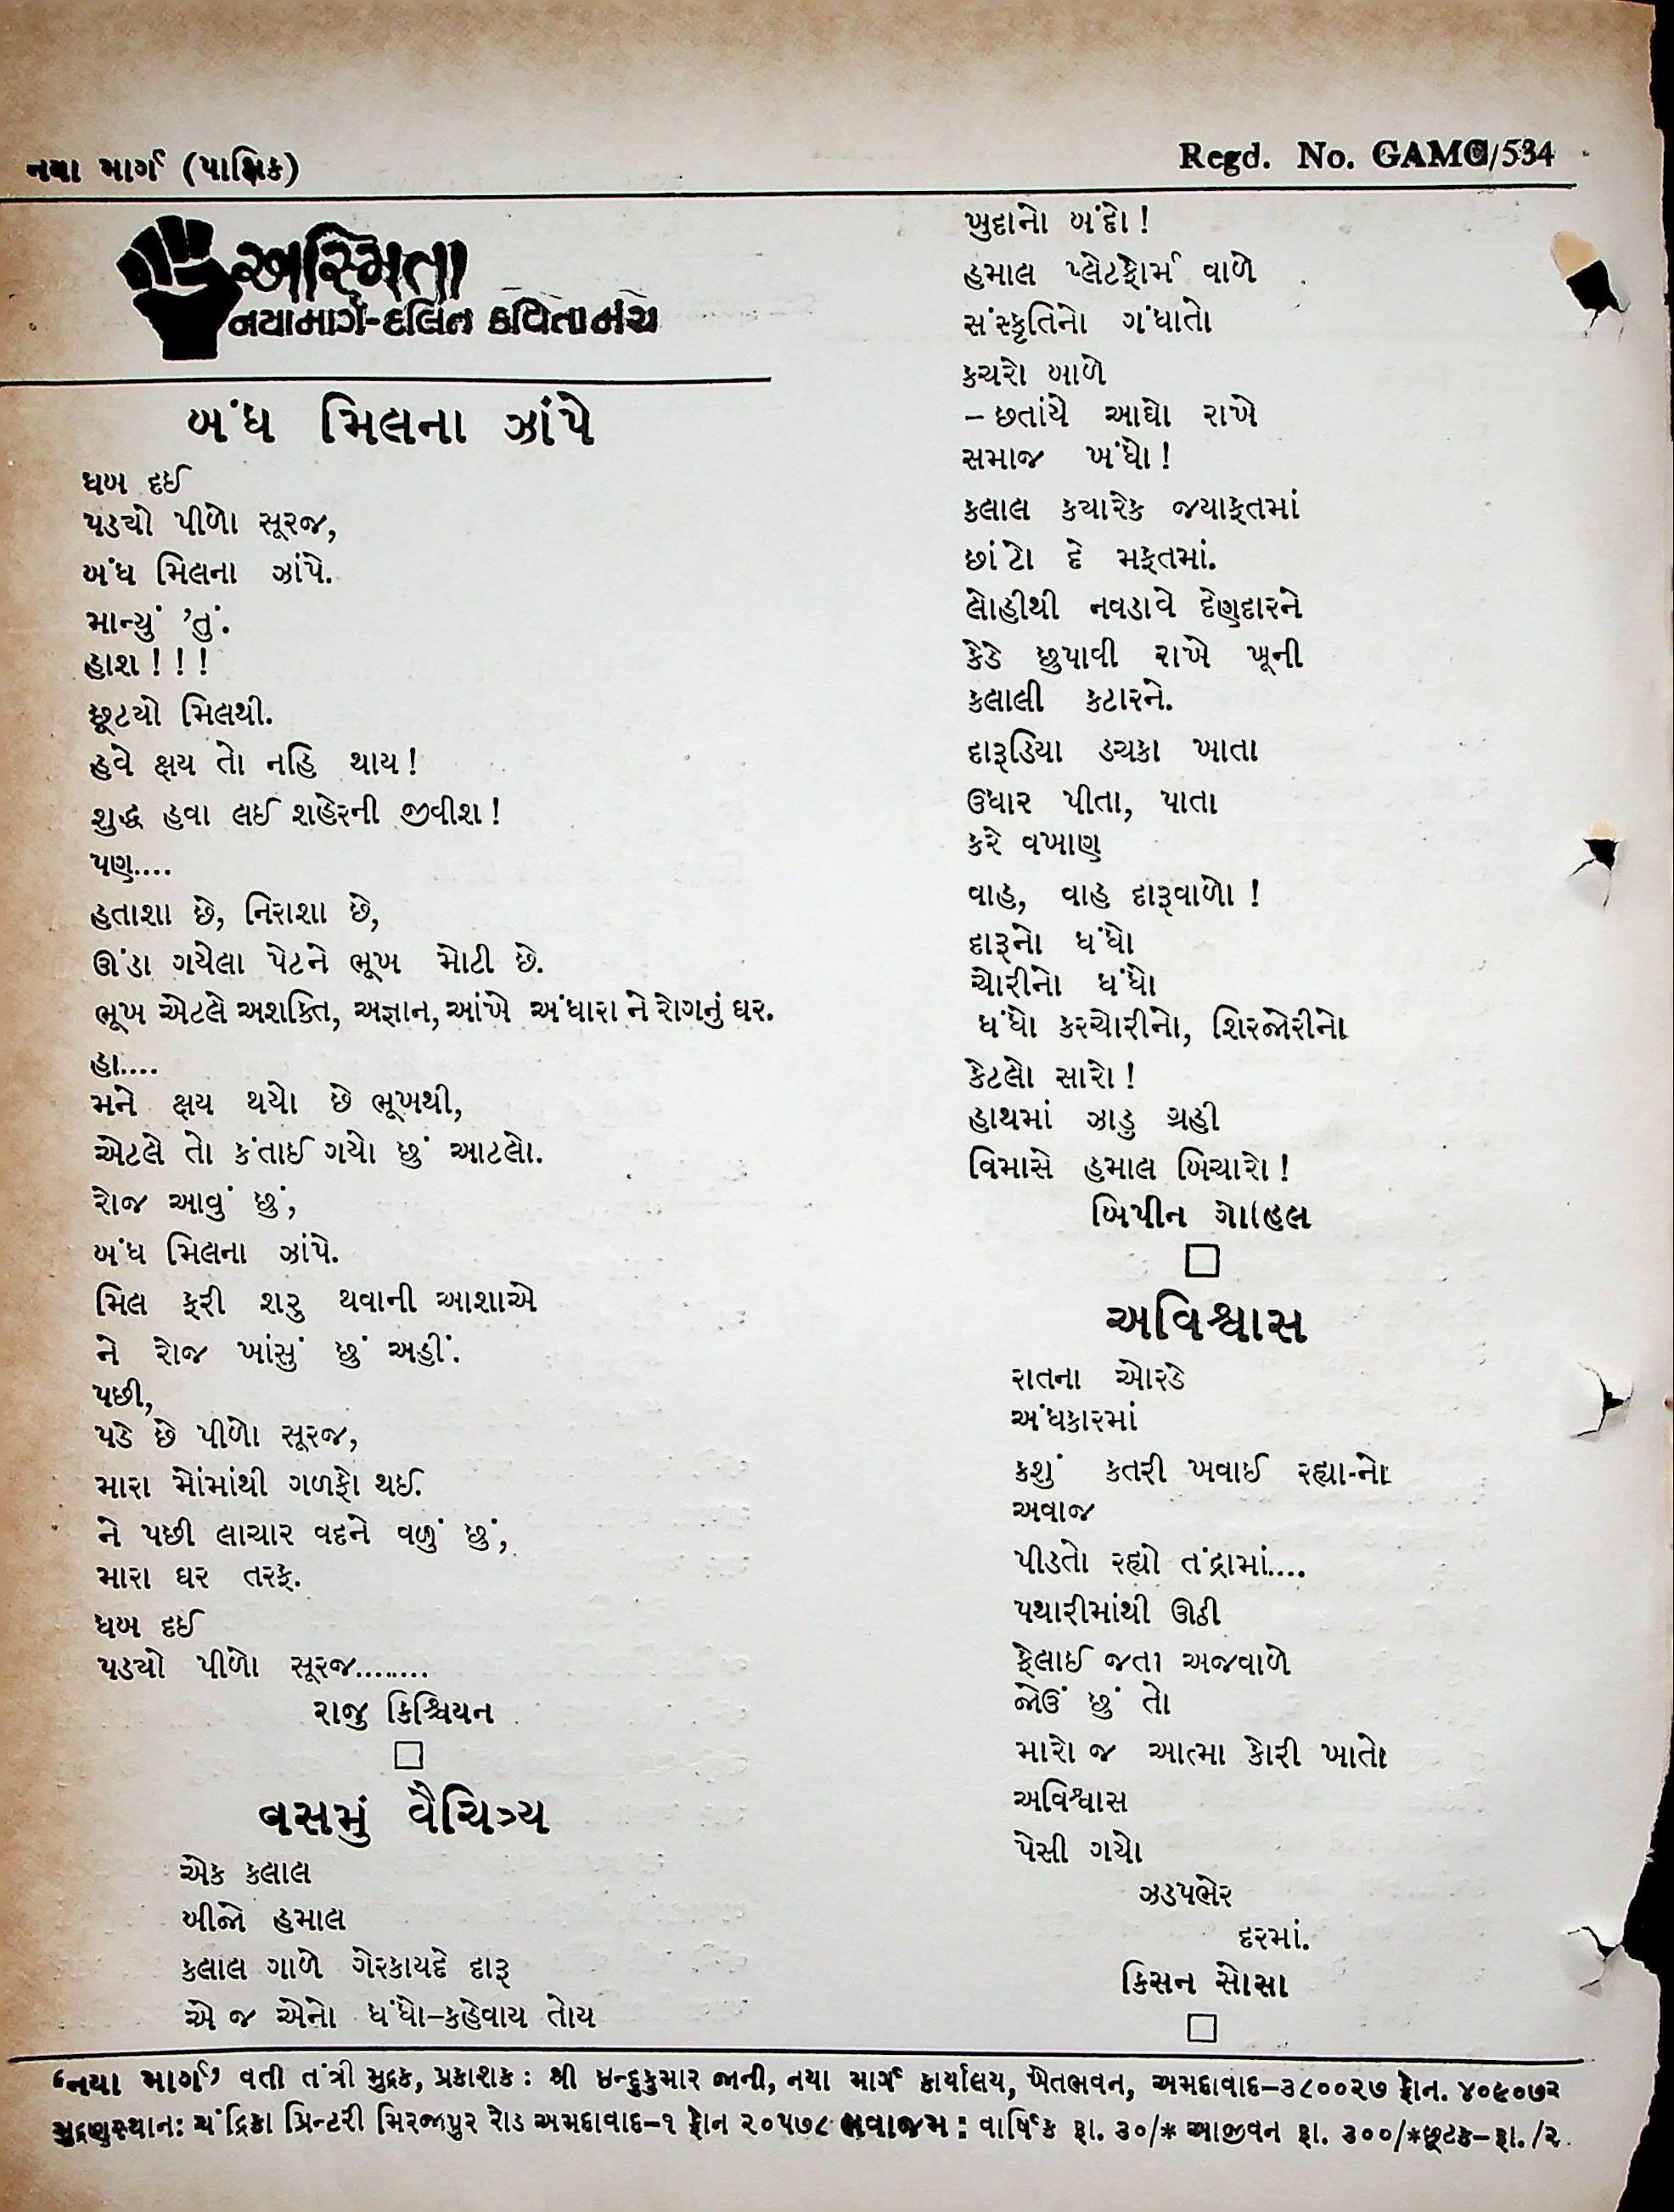 નયા માર્ગ (પાક્ષિક)
Regd. No. GAMC/534
અસ્મિતા
નયામાર્ગ-દલિત કવિતામંચ
બંધ મિલના ઝાંપે
ધબ દઈ
પડયો પીળો સૂરજ,
બંધ મિલના ઝાંપે.
માન્યું ’તું.
હાશ ! ! !
છૂટયો મિલથી.
હવે ક્ષય તો નહિ થાય !
શુદ્ધ હવા લઈ શહેરની જીવીશ !
પણ....
હતાશા છે, નિરાશા છે,
ઊંડા ગયેલા પેટને ભૂખ મોટી છે.
ભૂખ એટલે અશક્તિ, અજ્ઞાન, આંખે અંધારા ને રોગનું ઘર.
હા....
મને ક્ષય થયો છે ભૂખથી,
એટલે તો કંતાઈ ગયો છું આટલો.
રોજ આવું છું,
બંધ મિલના ઝાંપે.
મિલ ફરી શરુ થવાની આશાએ
ને રોજ ખાંસું છું અહીં.
પછી,
પડે છે પીળો સૂરજ,
મારા મોંમાંથી ગળફો થઈ.
ને પછી લાચાર વદને વળું છું,
મારા ઘર તરફ.
ધબ દઈ
પડયો પીળો સૂરજ........
રાજુ ક્રિશ્ચિયન
વસમું વૈચિત્ર્ય
એક કલાલ
બીજો હમાલ
કલાલ ગાળે ગેરકાયદે દારૂ
એ જ એનો ધંધો–કહેવાય તોય
ખુદાનો બંદો !
હમાલ પ્લેટફોર્મ વાળે
સંસ્કૃતિનો ગંધાતો
કચરો બાળે
– છતાંયે આઘો રાખે
સમાજ ખંધો !
કલાલ કયારેક જયાફતમાં
છાંટો દે મફતમાં.
લોહીથી નવડાવે દેણદારને
કેડે છુપાવી રાખે ખૂની
કલાલી કટારને.
દારૂડિયા ડચકા ખાતા
ઉધાર પીતા, પાતા
કરે વખાણ
વાહ, વાહ દારૂવાળો !
દારૂનો ધંધો
ચોરીનો ધંધો
ધંધો કરચોરીનો, શિરજોરીનો
કેટલો સારો !
હાથમાં ઝાડુ ગ્રહી
વિમાસે હમાલ બિચારો !
બિપીન ગોહિલ
અવિશ્વાસ
રાતના ઓરડે
અંધકારમાં
કશું કતરી ખવાઈ રહ્યા-નો
અવાજ
પીડતો રહ્યો તંદ્રામાં....
પથારીમાંથી ઊઠી
ફેલાઈ જતા અજવાળે
જોઉં છું તો
મારો જ આત્મા કોરી ખાતો
અવિશ્વાસ
પેસી ગયો
ઝડપભેર
દરમાં.
કિસન સોસા
‘નયા માર્ગ’ વતી તંત્રી મુદ્રક, પ્રકાશક : શ્રી ઇન્દુકુમાર જાની, નયા માર્ગ કાર્યાલય, ખેતભવન, અમદાવાદ–૩૮૦૦૨૭ ફોન. ૪૦૯૦૭૨
મુદ્રણસ્થાન: ચંદ્રિકા પ્રિન્ટરી મિરજાપુર રોડ અમદાવાદ–૧ ફોન ૨૦૫૭૮ લવાજમ : વાર્ષિક રૂા. ૩૦/* આજીવન રૂા. ૩૦૦/*છૂટક–રૂા. /૨.